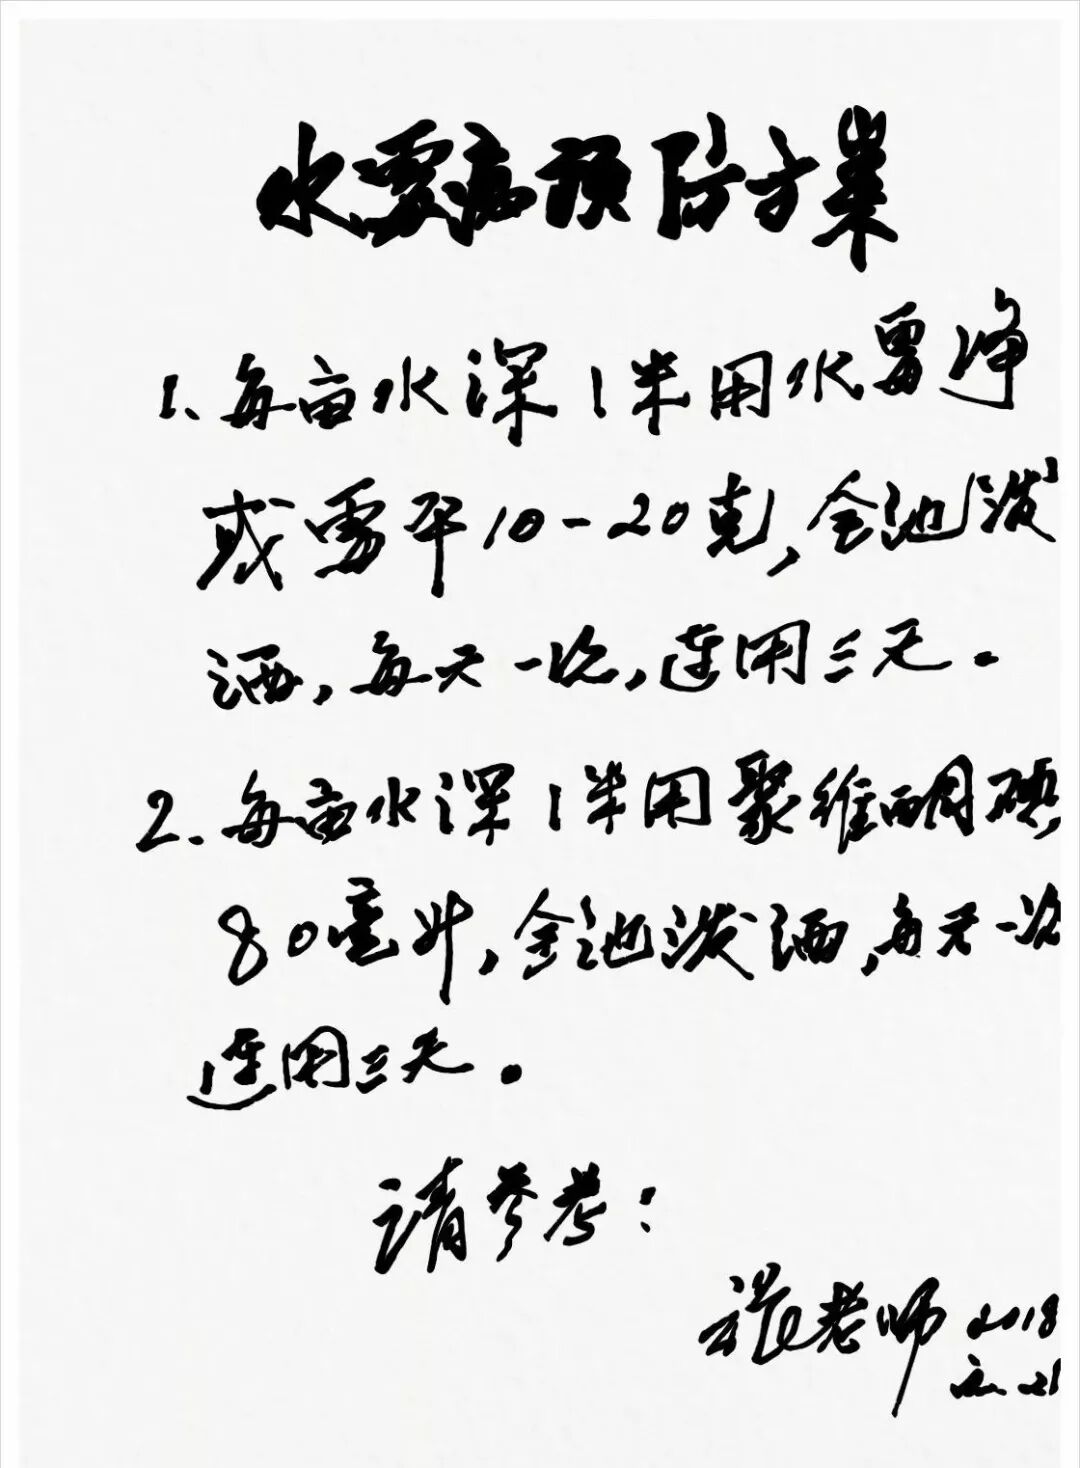 水霉病预防方案
1、每亩水深1米用水霉净
或霉平10-20克,全池泼
洒,每天一次,连用三天。
2.每亩水深1米用聚维酮碘
80毫升,全池泼洒,每天一次
连用三天。
请参考!
老师 2018